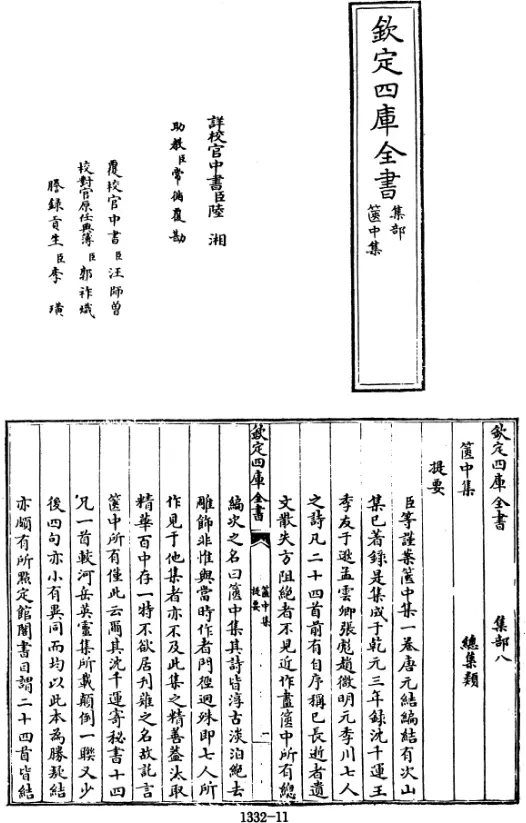 欽定四庫全書
集部
篋中集
詳校官中書臣陸湘
助教臣常循覆勘
覆校官中書臣汪師曾
校對官原任典簿臣郭祚熾
謄錄貢生臣李璜
欽定四庫全書 集部八
篋中集 總集類
提要
臣等謹案篋中集一卷唐元結編結有次山
集已著錄是集成于乾元三年錄沈千運王
季友于逖孟雲卿張彪趙微明元季川七人
之詩凡二十四首前有自序稱已長逝者遺
文散失方阻絶者不見近作盡篋中所有總
欽定四庫全書
篋中集
提要
一
編次之名曰篋中集其詩皆淳古淡泊絶去
雕飾非惟與當時作者門徑迥殊即七人所
作見于他集者亦不及此集之精善蓋汰取
精華百中存一特不欲居刋薙之名故託言
篋中所有僅此云爾其沈千運寄秘書十四
兄一首較河岳英靈集所載顛倒一聯又少
後四句亦小有異同而均以此本為勝疑結
亦頗有所點定館閣書目謂二十四首皆結
1332-11